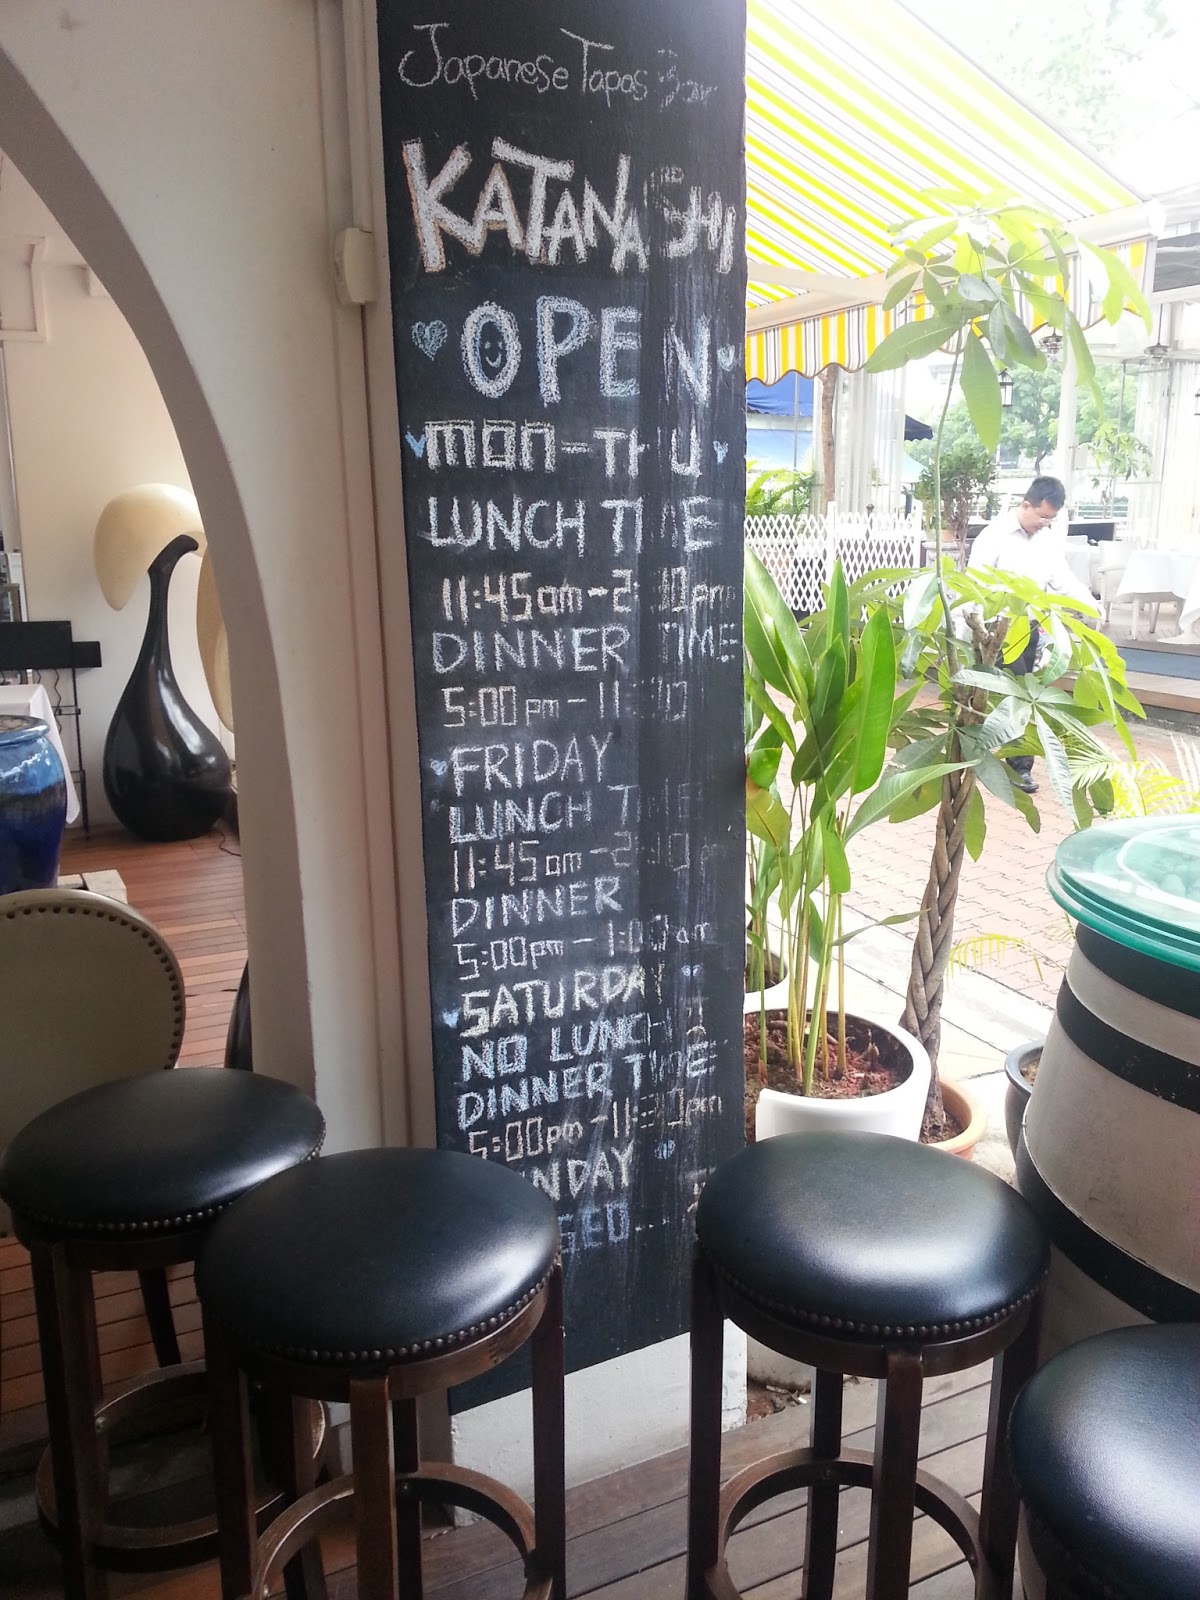 Japanese Tapas Bar
KATANASHI
OPEN
MON-THU
LUNCH TIME
11:45am-2:30pm
DINNER TIME
5:00pm-11:30
FRIDAY
LUNCH TIME
11:45am-2:30p
DINNER
5:00pm-1:00am
SATURDAY
NO LUNCH
DINNER TIME
5:00pm-11:30pm
NDAY
SED...